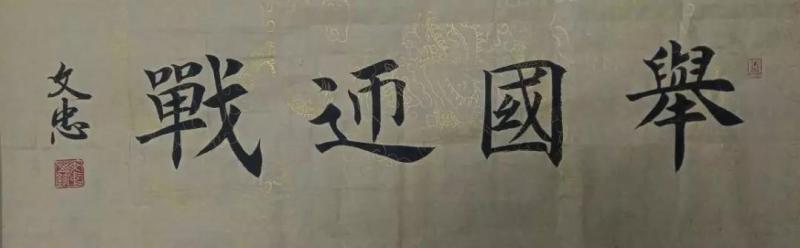 舉國迎戰
文忠